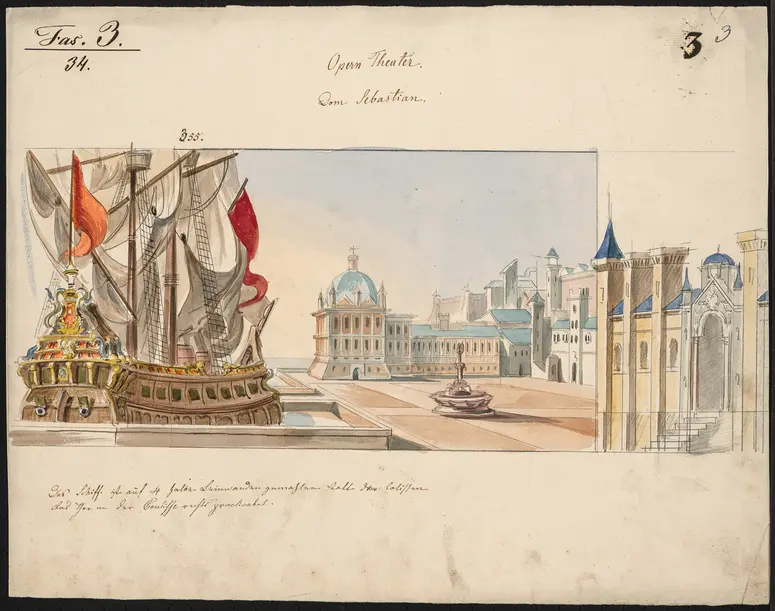 Fas. 3.
34.
3
3
Opern Theater.
Dom Sebastian.
355.
Das Schiff ist auf 4 gemahlen statt der Coulissen
das an der Coulisse rechts practicabel.